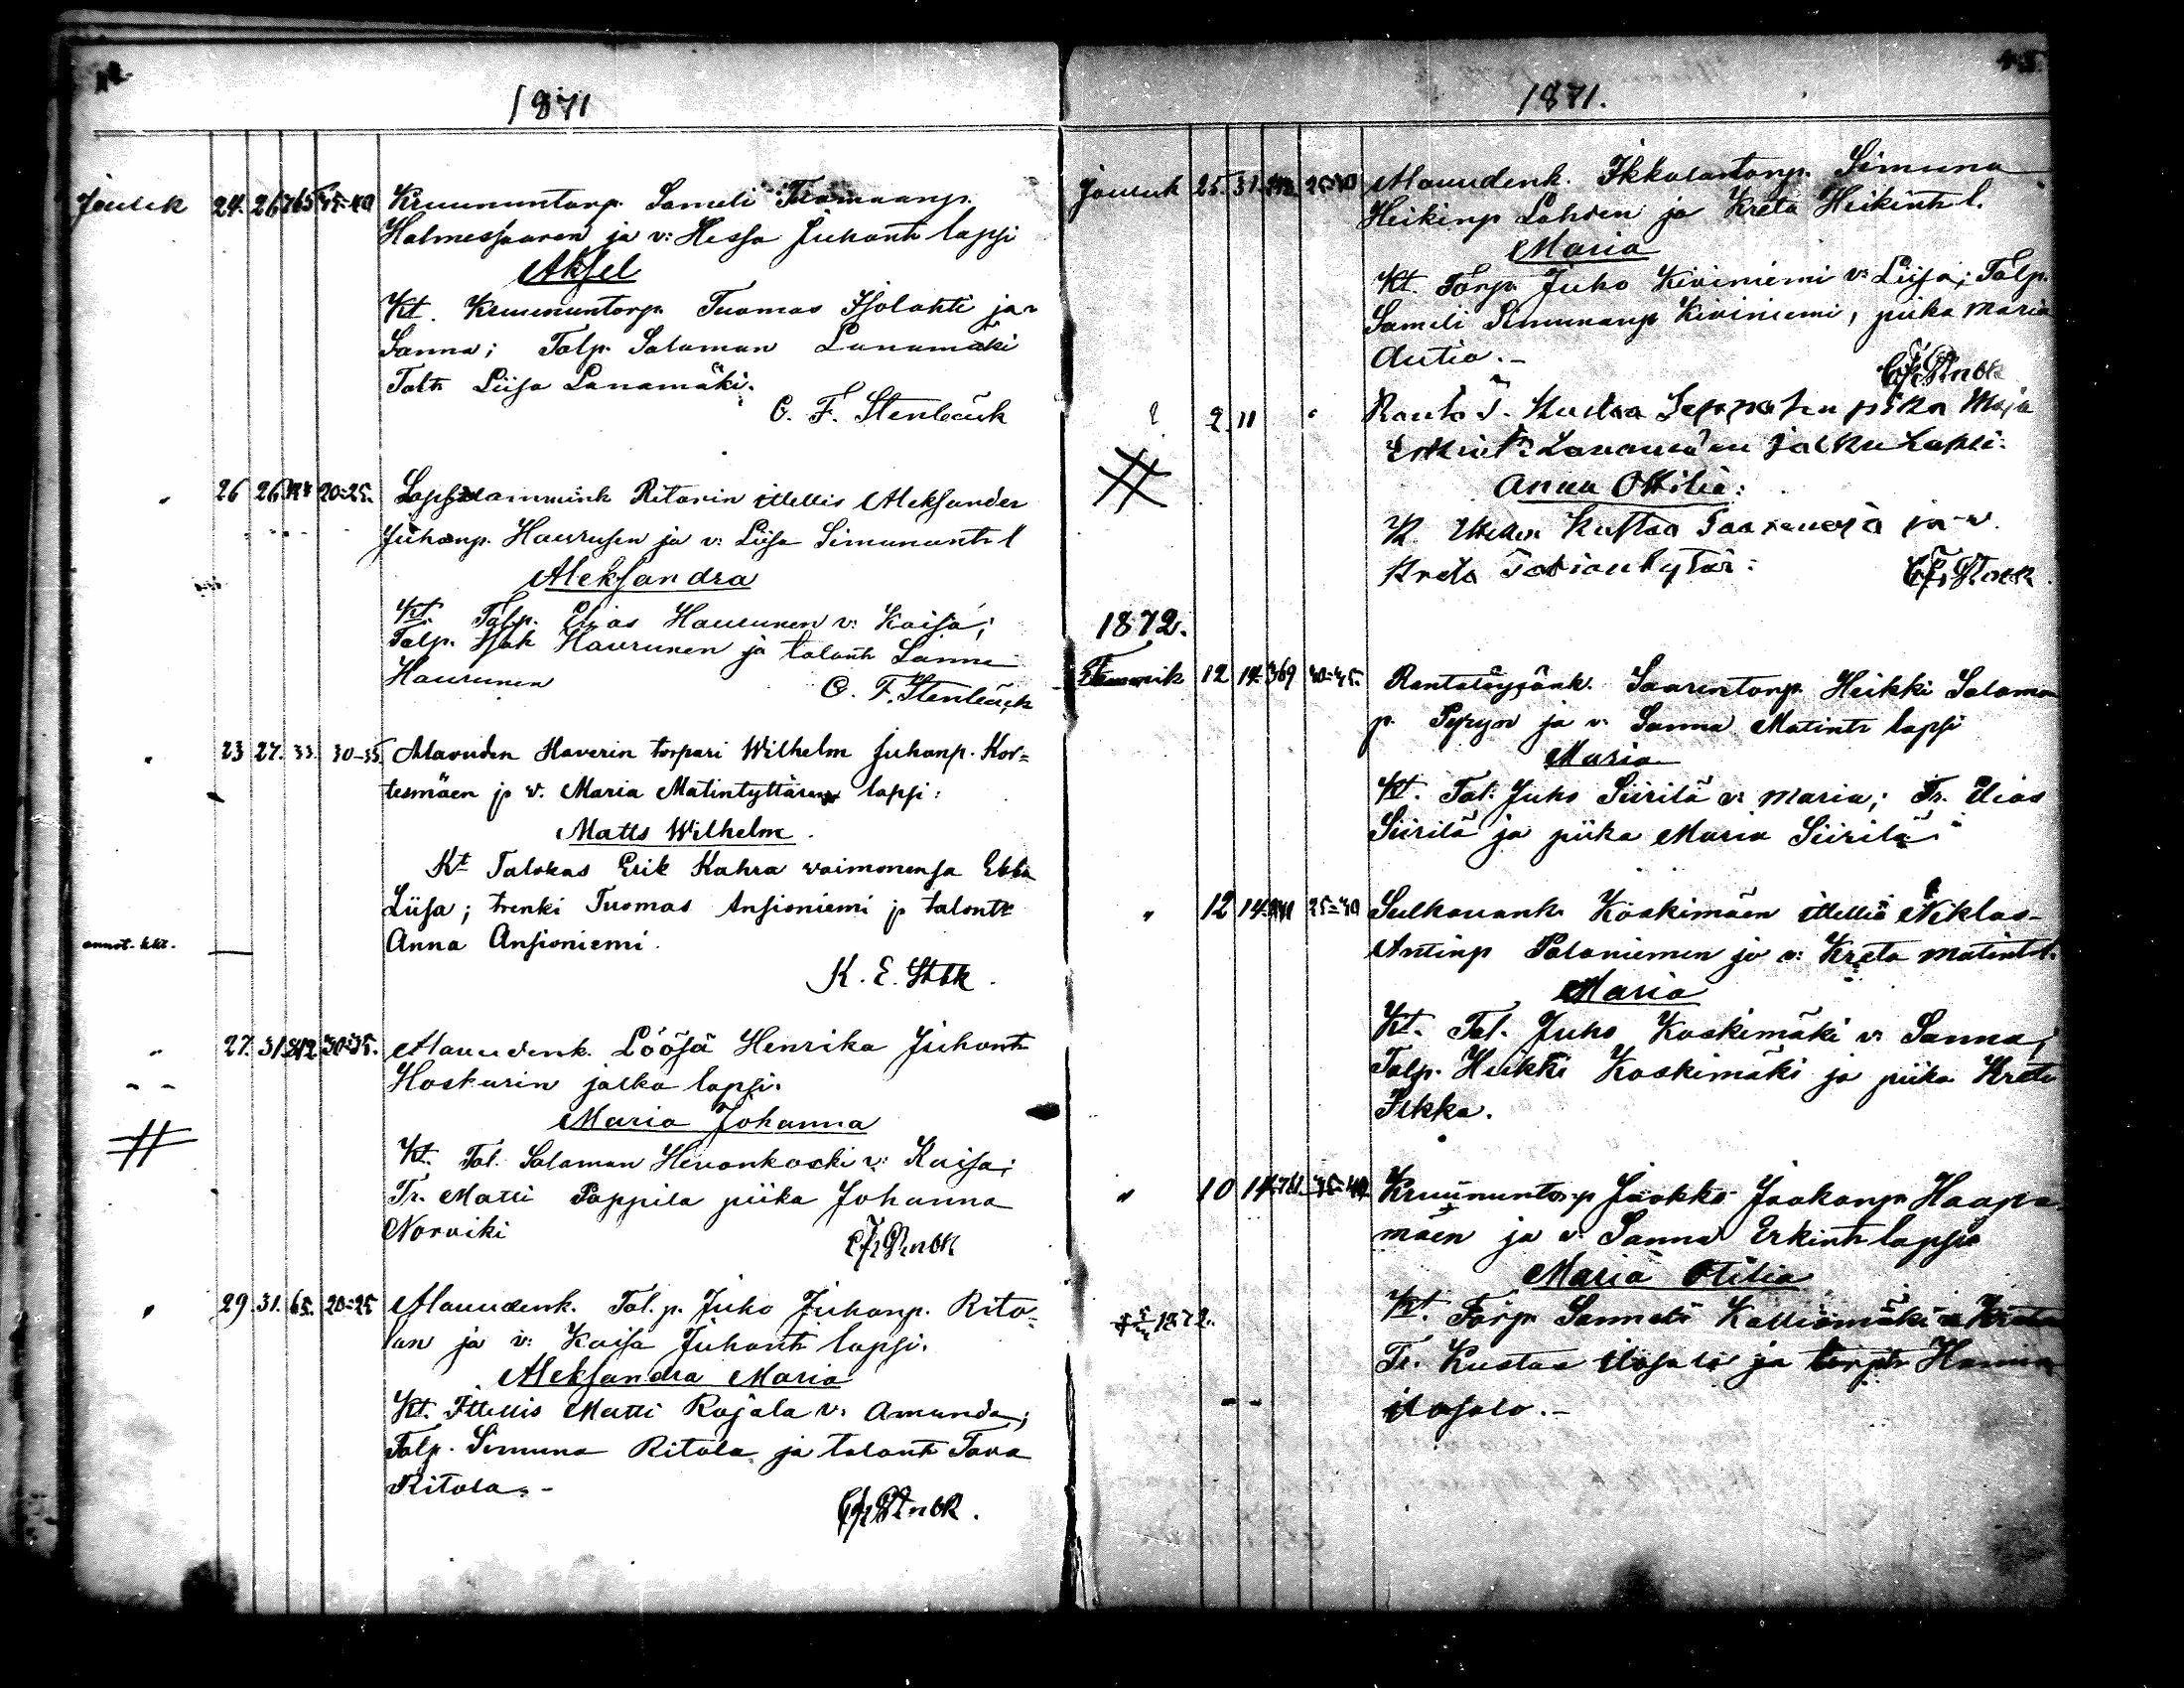 1871
Jouluk 24. 26. 765 35-40 Kruununtorp. Sameli Tuomaanp.
Holmessaaren ja v: Hessa Juhont lapsi
Aksel
Kt. Kruununtorp. Tuomas Isolahti ja v
Sanna; Talp. Salamon Lanamäki
Taltr Liisa Lanamäki.
C. F. Stenbäck
" 26 26 20-25. Lapsdammink Ritarin ittellis Aleksander
Juhanp. Haurusen ja v: Liisa Simunantr l
Aleksandra
Kt. Talp. Elias Haurunen v: Kaisa;
Talp. Isak Haurunen ja talontr Sanna
Haurunen
C. F. Stenbäck
" 23 27. 33. 30-35. Alavuden Haverin torpari Wilhelm Juhanp. Kor=
tesmäen ja v. Maria Matintyttären lapsi:
Matts Wilhelm.
Kt Talokas Erik Kahra vaimonensa Ebba
Liisa; trenki Tuomas Ansioniemi ja talontr
annot. Anna Ansioniemi.
K. E. Stbk.
" 27. 31. 812 30-35. Alavudenk. Löösä Henrika Juhontr
Hoskarin jalka lapsi.
Maria Johanna
Kt. Tal. Salamon Hevonkoski v: Kaisa;
Tr. Matti Pappila piika Johanna
Norviki
C.F. Stnbk
" 29. 31. 65. 20-25 Alavudenk. Tal. p. Juho Juhanp. Rito=
lan ja v: Kaisa Juhontr lapsi.
Aleksandra Maria
Kt. Ittellis Matti Rajala v: Amanda;
Talp. Simuna Ritola ja talontr Tava
Ritola.-
C.F. Stnbk.
1871.
Jouluk 25. 31. 25-30 Alavudenk. Ikkalantorp. Simuna
Heikinp Lahden ja Kreta Heikintr l.
Maria
Kt. Torp. Juho Kiviniemi v: Liisa; Talp.
Sameli Simunanp Kiviniemi, piika Maria
Autio.-
C.F. Stnbk
2 11 " Kustaa Seppälän piika Maja
Erkint: Lanamäen jalku Lapsi:
Anna Ottilia:
Kt. Kustaa Saarenoja ja v.
Kreta
1872.
Tammik 12 14. 369 40-45. Rantatöysänk. Saarentorp. Heikki Salamon
p. Pyryn ja v. Sanna Matintr lapsi
Maria
Kt. Tal. Juho Siirilä v: Maria; Tr. Elias
Siirilä ja piika Maria Siirilä.
" 12 14. 25-30 Sulkavank. Köskimäen ittellis Niklas
Antinp Palaniemen ja v: Kreta Matintr l.
Maria
Kt. Tal. Juho Koskimäki v: Sanna;
Talp. Heikki Koskimäki ja piika Kreta
Pekka.
" 10 14. 761. 35-40. Kruununtorp Jaakko Jaakonp. Haapa=
mäen ja v: Sanna Erkintr lapsi
Maria Otilia
1872. Kt. Torp. Sameli Kalliomäki v: Kreta
Tr. Kustaa Ilosalo ja torptr Hanna
Ilosalo.-